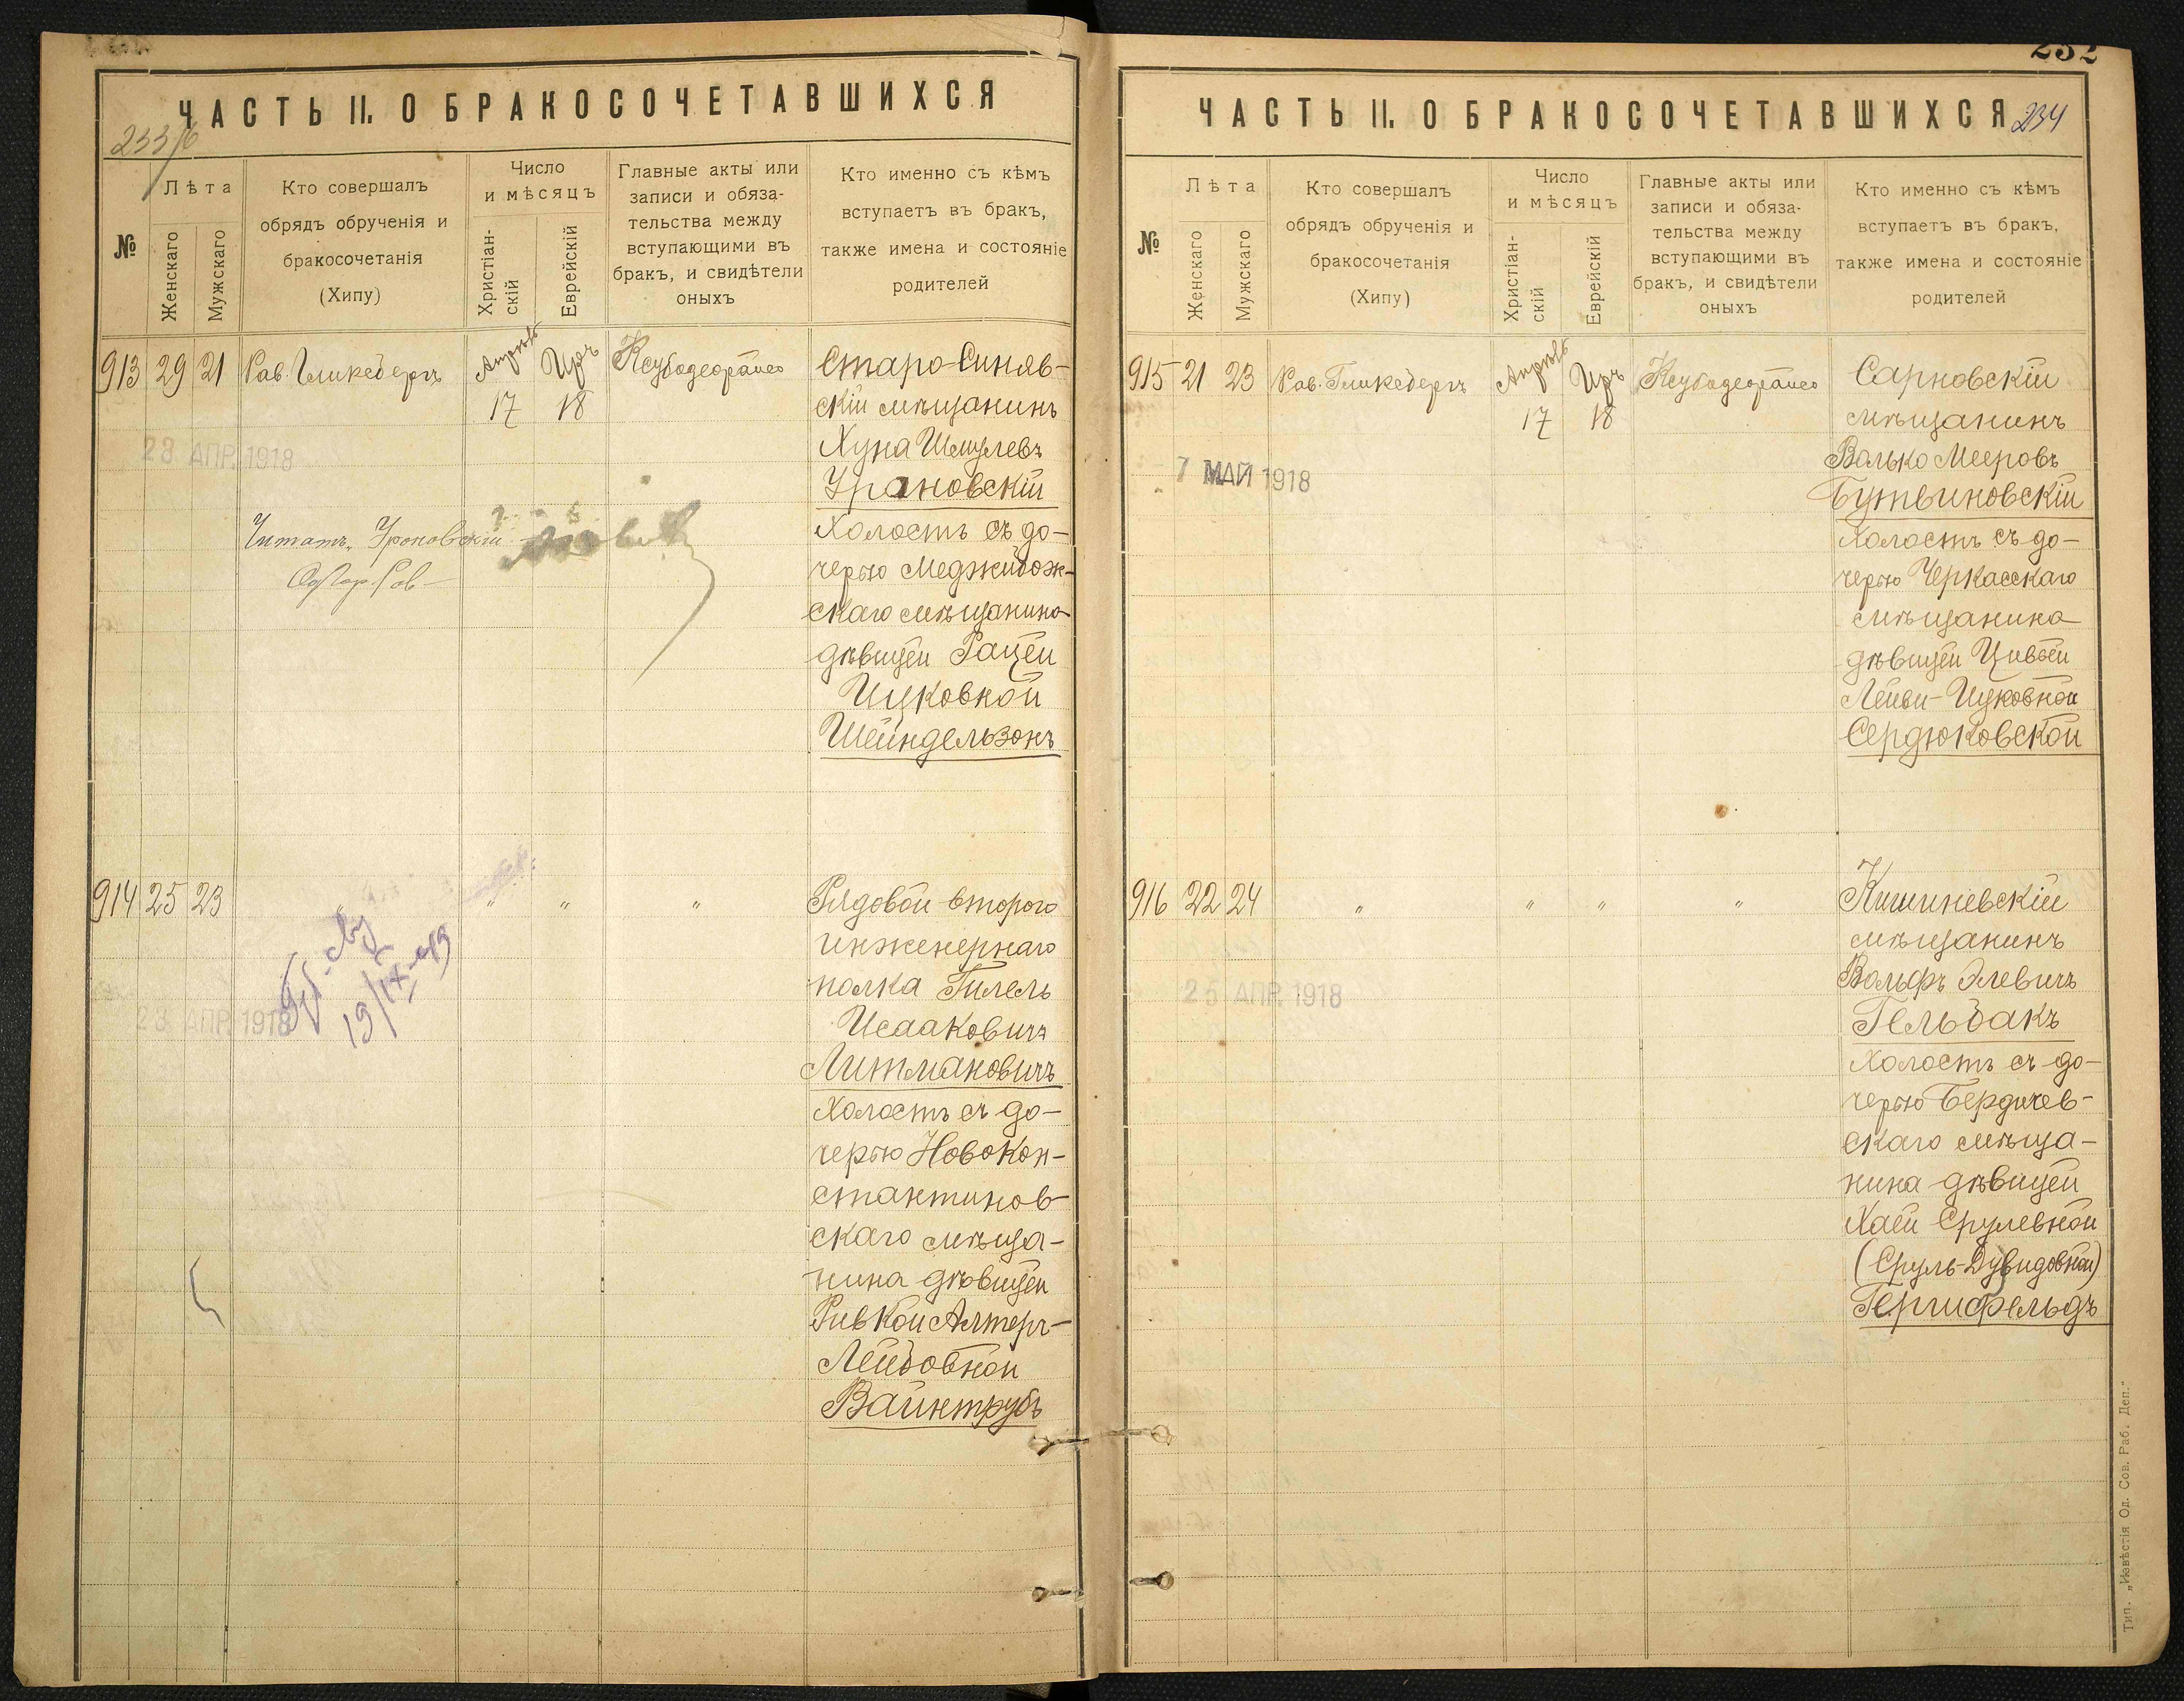 ЧАСТЬ II. О БРАКОСОЧЕТАВШИХСЯ
233/б
№
Лѣта
Женскаго
Мужскаго
Кто совершалъ
обрядъ обрученія и
бракосочетанія
(Хипу)
Число
и мѣсяцъ
Христіан-
скій
Еврейскій
Главные акты или
записи и обяза-
тельства между
вступающими въ
бракъ, и свидѣтели
оныхъ
Кто именно съ кѣмъ
вступаетъ въ бракъ,
также имена и состояніе
родителей
913 29 21 Рав. Гликсбергъ Апрѣль 17 Иръ 18
Старо-Синяв-
скій мѣщанинъ
Хуна Шмулевъ
Урановскій
холостъ съ до-
черью Меджибож-
скаго мѣщанина
дѣвицей Рацей
Ицковной
Шейндельзонъ
23 АПР. 1918
Читать "Уроновскій"
914 25 23 " " " "
Рядовой второго
инженернаго
полка Гилель
Исааковичъ
Литмановичъ
холостъ съ до-
черью Новокон-
стантинов-
скаго мѣща-
нина дѣвицей
Ривкой Алтеръ-
Лейбовной
Вайнтрубъ
19/IX-
23 АПР. 1918
232
ЧАСТЬ II. О БРАКОСОЧЕТАВШИХСЯ
234
№
Лѣта
Женскаго
Мужскаго
Кто совершалъ
обрядъ обрученія и
бракосочетанія
(Хипу)
Число
и мѣсяцъ
Христіан-
скій
Еврейскій
Главные акты или
записи и обяза-
тельства между
вступающими въ
бракъ, и свидѣтели
оныхъ
Кто именно съ кѣмъ
вступаетъ въ бракъ,
также имена и состояніе
родителей
915 21 23 Рав. Гликсбергъ Апрѣль 17 Иръ 18
Сарновскій
мѣщанинъ
Волько Мееровъ
Бутвиновскій
холостъ съ до-
черью Черкасскаго
мѣщанина
дѣвицей Цивьей
Лейви-Ицковной
Сердюковской
7 МАЙ 1918
916 22 24 " " " "
Кишиневскій
мѣщанинъ
Вольфъ Элевичъ
Гельбакъ
холостъ съ до-
черью Бердичев-
скаго мѣща-
нина дѣвицей
Хаей Срулевной
(Сруль-Дувидовной)
Гершфельдъ
25 АПР. 1918
Тип. „Извѣстія Од. Сов. Раб. Деп."